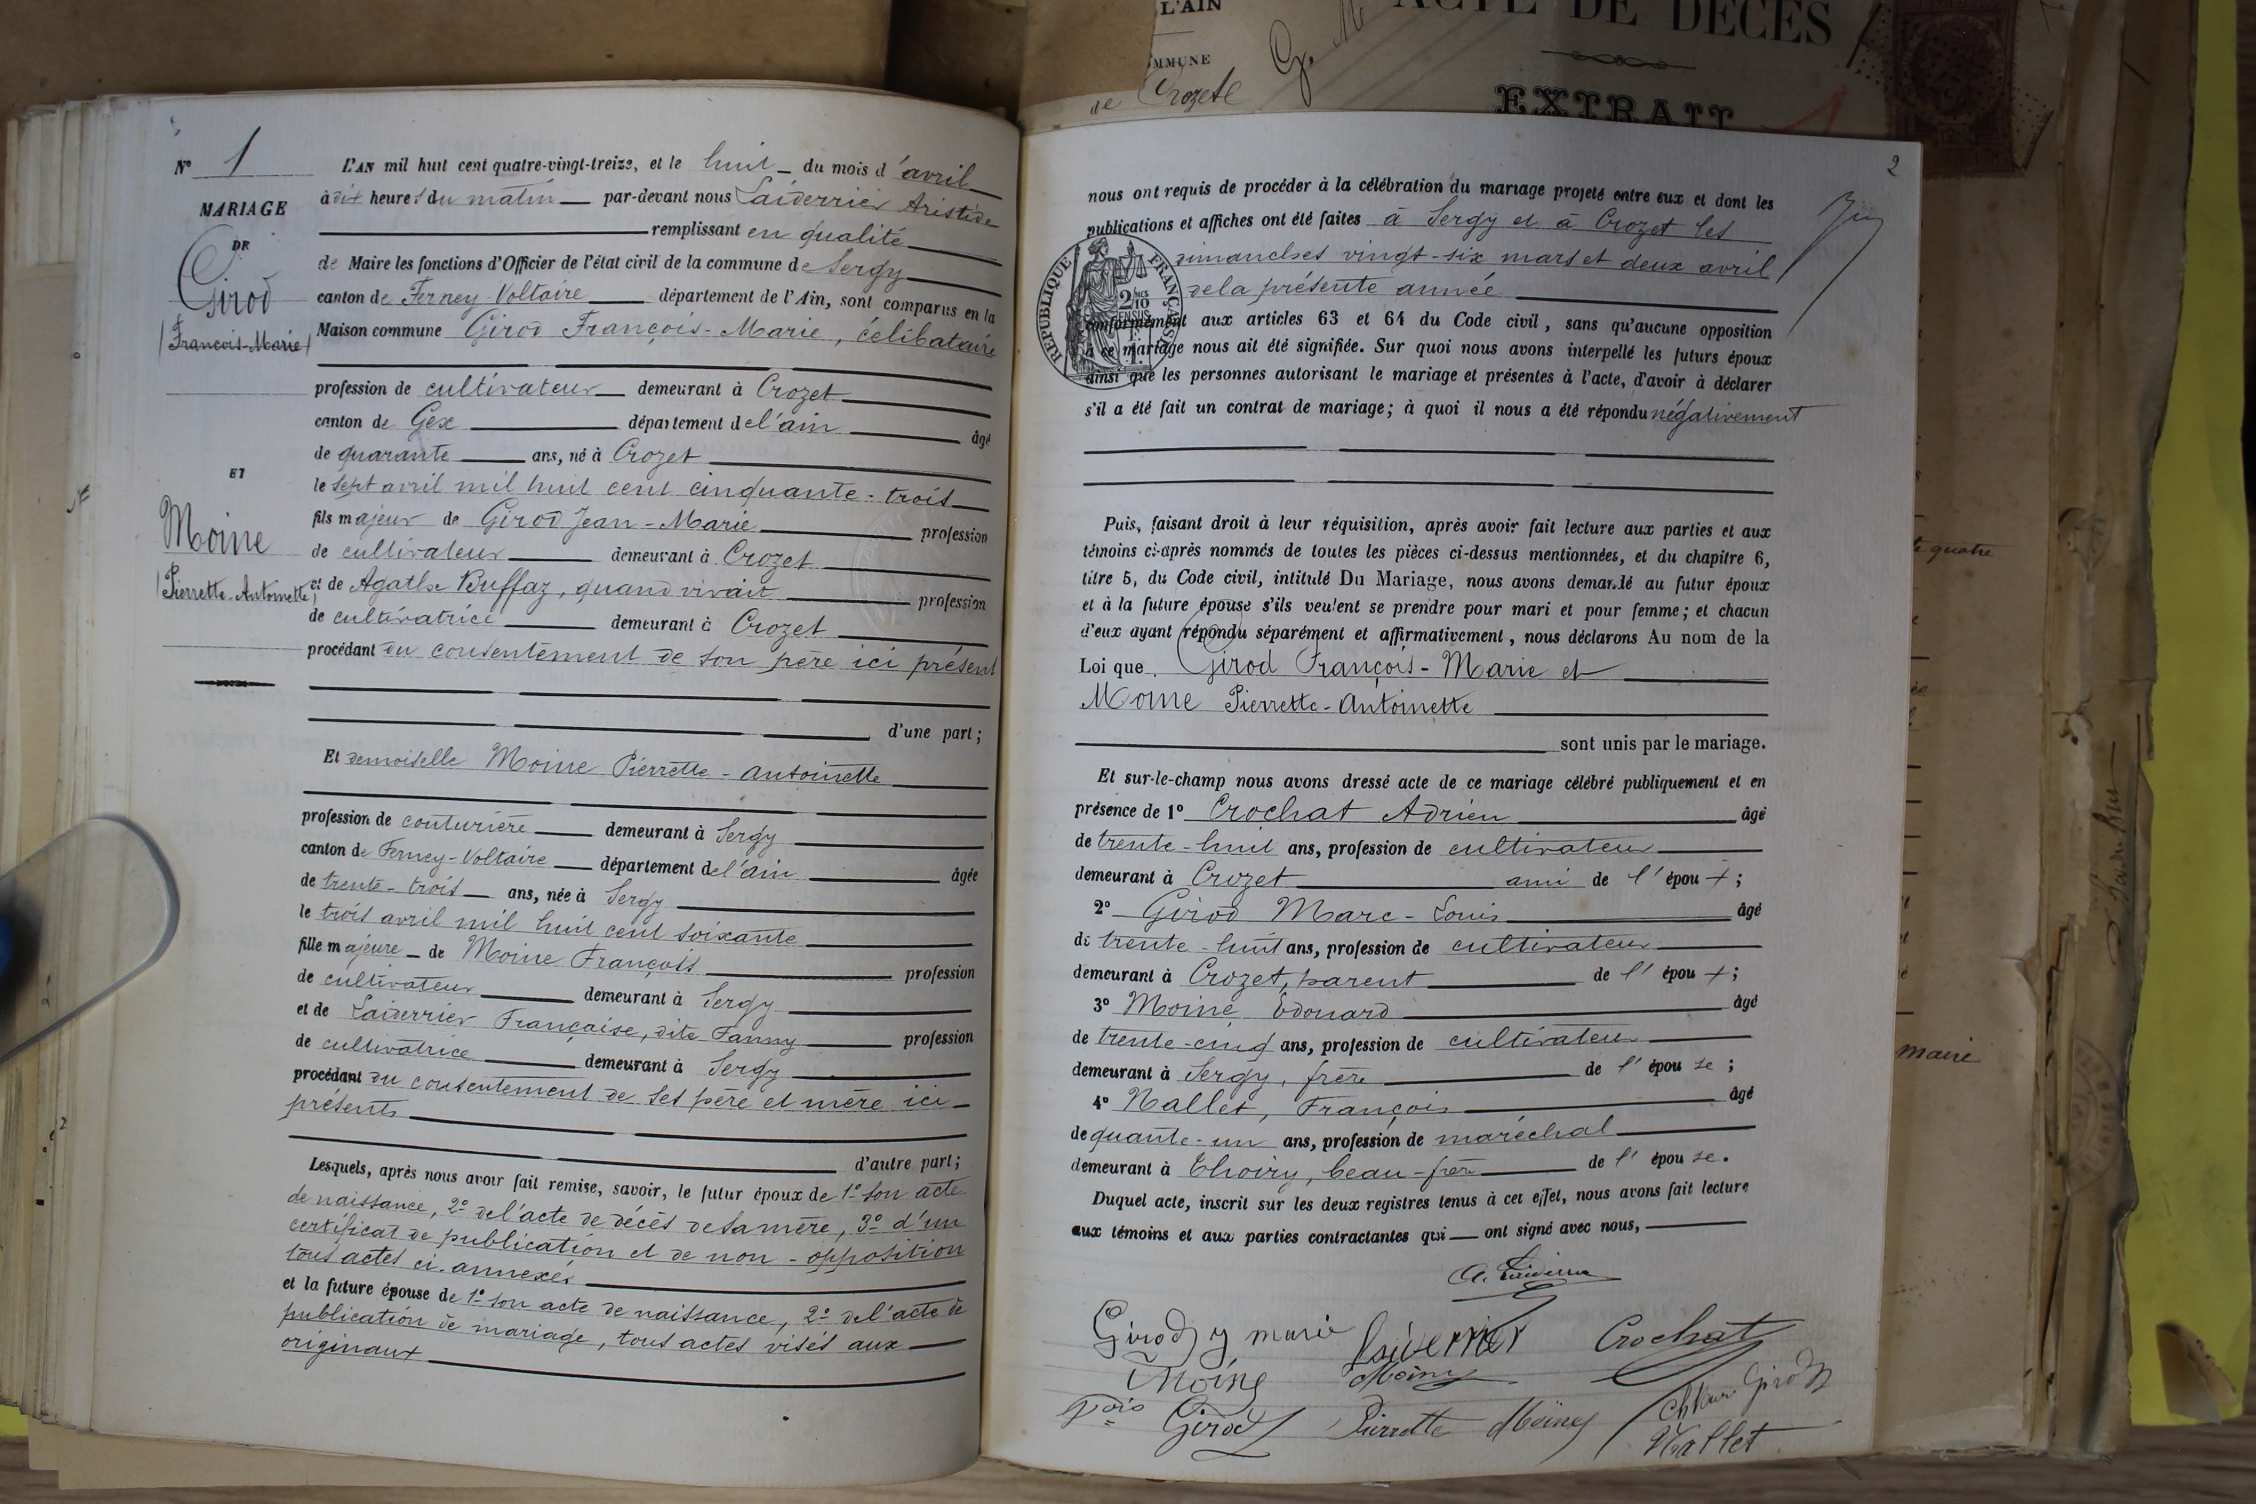 L'AIN
ACTE DE DÉCÈS
COMMUNE
de Crozet
EXTRAIT
N° 1
MARIAGE
DE
Girod
François-Marie
ET
Moine
Pierrette-Antoinette
L'AN mil huit cent quatre-vingt-treize, et le huit du mois d'avril
à dix heures du matin par-devant nous Laiderrier Aristide
remplissant en qualité
de Maire les fonctions d'Officier de l'état civil de la commune de Sergy
canton de Ferney-Voltaire département de l'Ain, sont comparus en la
Maison commune Girod François-Marie, célibataire
profession de cultivateur demeurant à Crozet
canton de Gex département de l'ain âgé
de quarante ans, né à Crozet
le sept avril mil huit cent cinquante-trois
fils majeur de Girod Jean-Marie profession
de cultivateur demeurant à Crozet
et de Agathe Buffaz, quand vivait profession
de cultivatrice demeurant à Crozet
procédant du consentement de son père ici présent
d'une part;
Et demoiselle Moine Pierrette-Antoinette
profession de couturière demeurant à Sergy
canton de Ferney-Voltaire département de l'ain âgée
de trente-trois ans, née à Sergy
le trois avril mil huit cent soixante
fille majeure de Moine François profession
de cultivateur demeurant à Sergy
et de Laiderrier Française, dite Fanny profession
de cultivatrice demeurant à Sergy
procédant du consentement de ses père et mère ici
présents
d'autre part;
Lesquels, après nous avoir fait remise, savoir, le futur époux de 1° son acte
de naissance, 2° de l'acte de décès de sa mère, 3° d'un
certificat de publication et de non-opposition
tous actes ci-annexés
et la future épouse de 1° son acte de naissance, 2° de l'acte de
publication de mariage, tous actes visés aux
originaux
2
nous ont requis de procéder à la célébration du mariage projeté entre eux et dont les
publications et affiches ont été faites à Sergy et à Crozet les
dimanches vingt-six mars et deux avril
de la présente année
RÉPUBLIQUE FRANÇAISE
conformément aux articles 63 et 64 du Code civil, sans qu'aucune opposition
à ce mariage nous ait été signifiée. Sur quoi nous avons interpellé les futurs époux
ainsi que les personnes autorisant le mariage et présentes à l'acte, d'avoir à déclarer
s'il a été fait un contrat de mariage; à quoi il nous a été répondu négativement
Puis, faisant droit à leur réquisition, après avoir fait lecture aux parties et aux
témoins ci-après nommés de toutes les pièces ci-dessus mentionnées, et du chapitre 6,
titre 5, du Code civil, intitulé Du Mariage, nous avons demandé au futur époux
et à la future épouse s'ils veulent se prendre pour mari et pour femme; et chacun
d'eux ayant répondu séparément et affirmativement, nous déclarons Au nom de la
Loi que Girod François-Marie et
Moine Pierrette-Antoinette
sont unis par le mariage.
Et sur-le-champ nous avons dressé acte de ce mariage célébré publiquement et en
présence de 1° Crochat Adrien âgé
de trente-huit ans, profession de cultivateur
demeurant à Crozet ami de l'époux;
2° Girod Marc-Louis âgé
de trente-huit ans, profession de cultivateur
demeurant à Crozet, parent de l'époux;
3° Moine Edouard âgé
de trente-cinq ans, profession de cultivateur
demeurant à Sergy, frère de l'épouse;
4° Nallet, François âgé
de quante-un ans, profession de maréchal
demeurant à Thoiry, beau-frère de l'épouse.
Duquel acte, inscrit sur les deux registres tenus à cet effet, nous avons fait lecture
aux témoins et aux parties contractantes qui ont signé avec nous,
A. Laiderrier
Girod f marie Laiderrier Crochat
Moine Moine
Girod Pierrette Moine Girod
Nallet
te quatre
maire